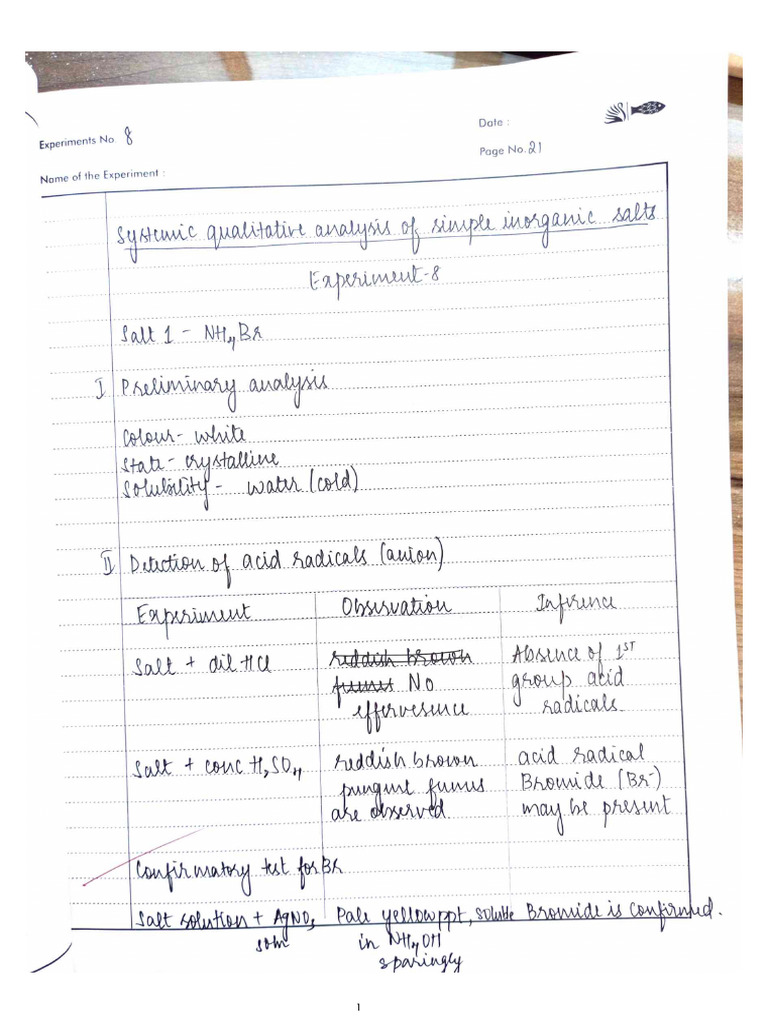 Experiments No. 8
Date :
Page No. 21
Name of the Experiment :
Systemic qualitative analysis of simple inorganic salts
Experiment-8
Salt 1 - NH4Br
I Preliminary analysis
Colour- white
State- crystalline
Solubility - water (cold)
II Detection of acid radicals (anion)
Experiment Observation Inference
Salt + dil HCl reddish brown Absence of 1ST
fumes No group acid
effervesence radicals.
Salt + conc H2SO4 reddish brown acid radical
pungent fumes Bromide (Br-)
are observed may be present
Confirmatory test for Br
Salt solution + AgNO3 Pale yellow ppt, soluble Bromide is confirmed.
soln in NH4OH
sparingly
1